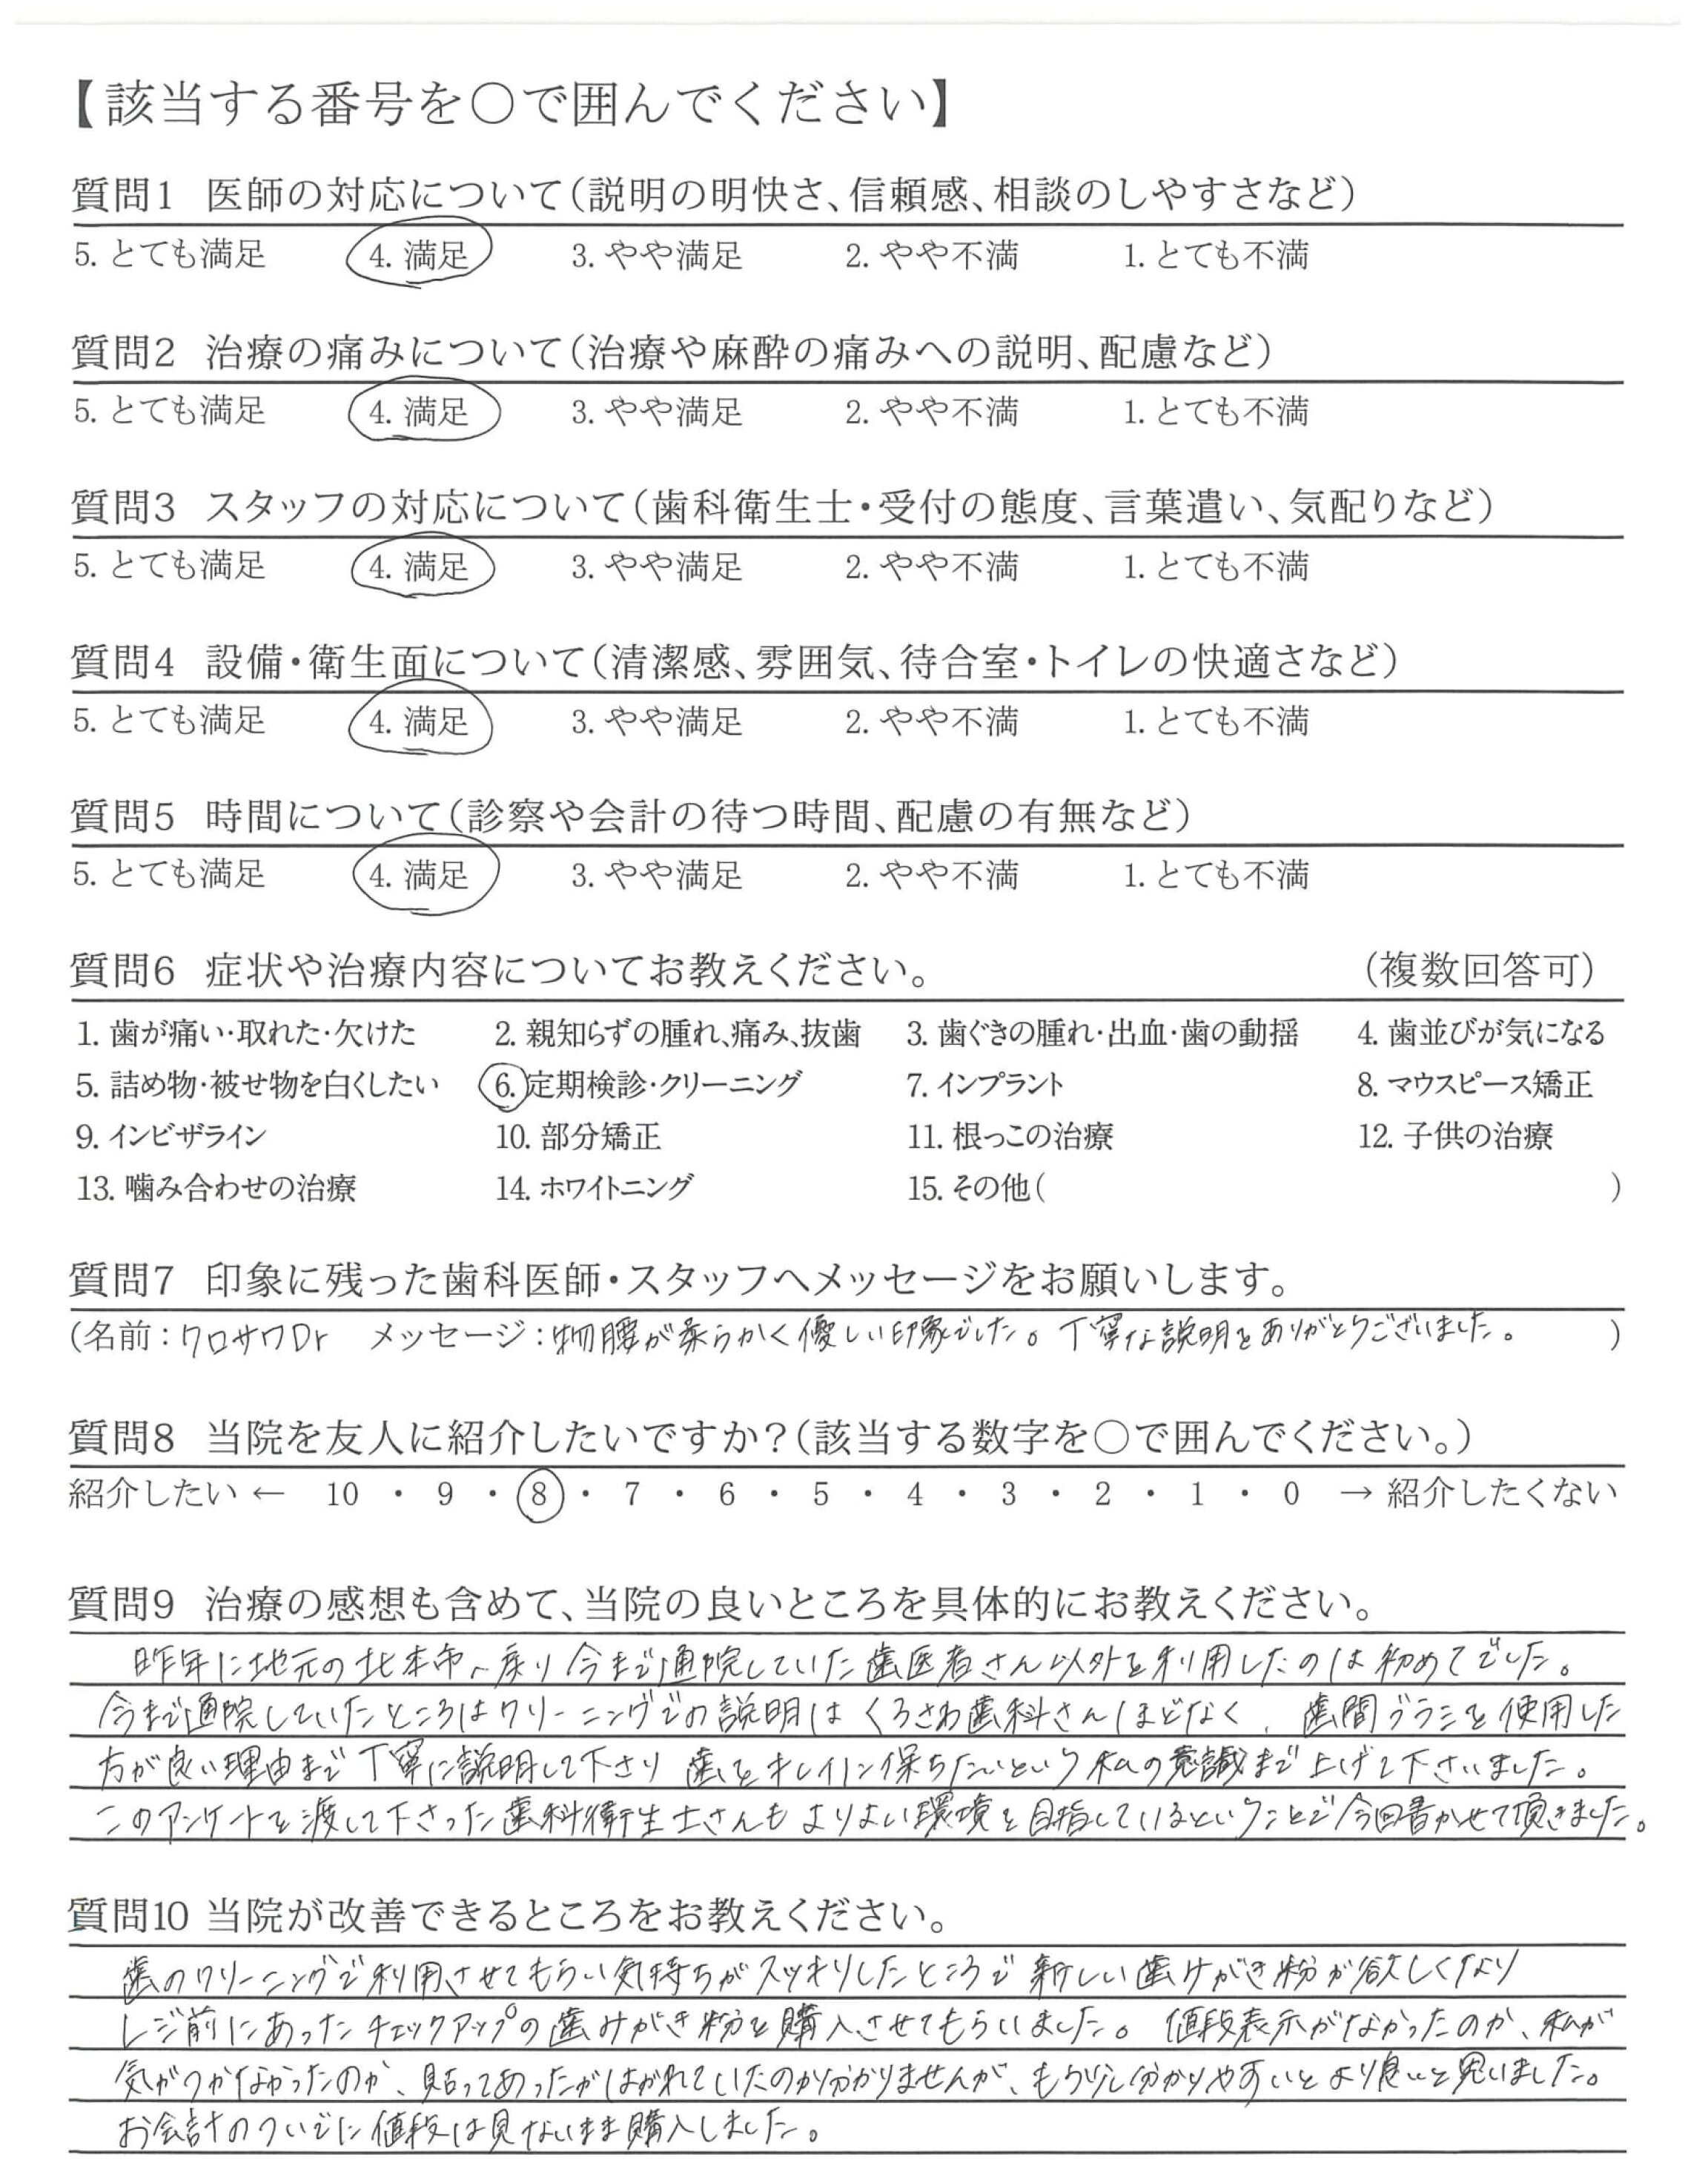 【該当する番号を〇で囲んでください】
質問1 医師の対応について(説明の明快さ、信頼感、相談のしやすさなど)
5. とても満足 4. 満足 3. やや満足 2. やや不満 1. とても不満
質問2 治療の痛みについて(治療や麻酔の痛みへの説明、配慮など)
5. とても満足 4. 満足 3. やや満足 2. やや不満 1. とても不満
質問3 スタッフの対応について(歯科衛生士・受付の態度、言葉遣い、気配りなど)
5. とても満足 4. 満足 3. やや満足 2. やや不満 1. とても不満
質問4 設備・衛生面について(清潔感、雰囲気、待合室・トイレの快適さなど)
5. とても満足 4. 満足 3. やや満足 2. やや不満 1. とても不満
質問5 時間について(診察や会計の待つ時間、配慮の有無など)
5. とても満足 4. 満足 3. やや満足 2. やや不満 1. とても不満
質問6 症状や治療内容についてお教えください。 (複数回答可)
1. 歯が痛い・取れた・欠けた 2. 親知らずの腫れ、痛み、抜歯 3. 歯ぐきの腫れ・出血・歯の動揺 4. 歯並びが気になる
5. 詰め物・被せ物を白くしたい 6. 定期検診・クリーニング 7. インプラント 8. マウスピース矯正
9. インビザライン 10. 部分矯正 11. 根っこの治療 12. 子供の治療
13. 噛み合わせの治療 14. ホワイトニング 15. その他( )
質問7 印象に残った歯科医師・スタッフへメッセージをお願いします。
(名前：クロサワDr メッセージ：物腰が柔らかく優しい印象でした。丁寧な説明をありがとうございました。 )
質問8 当院を友人に紹介したいですか？(該当する数字を〇で囲んでください。)
紹介したい ← 10 ・ 9 ・ 8 ・ 7 ・ 6 ・ 5 ・ 4 ・ 3 ・ 2 ・ 1 ・ 0 → 紹介したくない
質問9 治療の感想も含めて、当院の良いところを具体的にお教えください。
昨年に地元の北本市へ戻り今まで通院していた歯医者さん以外を利用したのは初めてでした。
今まで通院していたところはクリーニングでの説明はくろさわ歯科さんほどなく、歯間ブラシを使用した
方が良い理由まで丁寧に説明して下さり歯をキレイに保ちたいという私の意識まで上げて下さいました。
このアンケートを渡して下さった歯科衛生士さんもよりよい環境を目指しているということで今回書かせて頂きました。
質問10 当院が改善できるところをお教えください。
歯のクリーニングで利用させてもらい気持ちがスッキリしたところで新しい歯みがき粉が欲しくなり
レジ前にあったチェックアップの歯みがき粉を購入させてもらいました。値段表示がなかったのか、私が
気がつかなかったのか、貼ってあったがはがれていたのか分かりませんが、もう少し分かりやすいとより良いと思いました。
お会計のついでに値段は見ないまま購入しました。